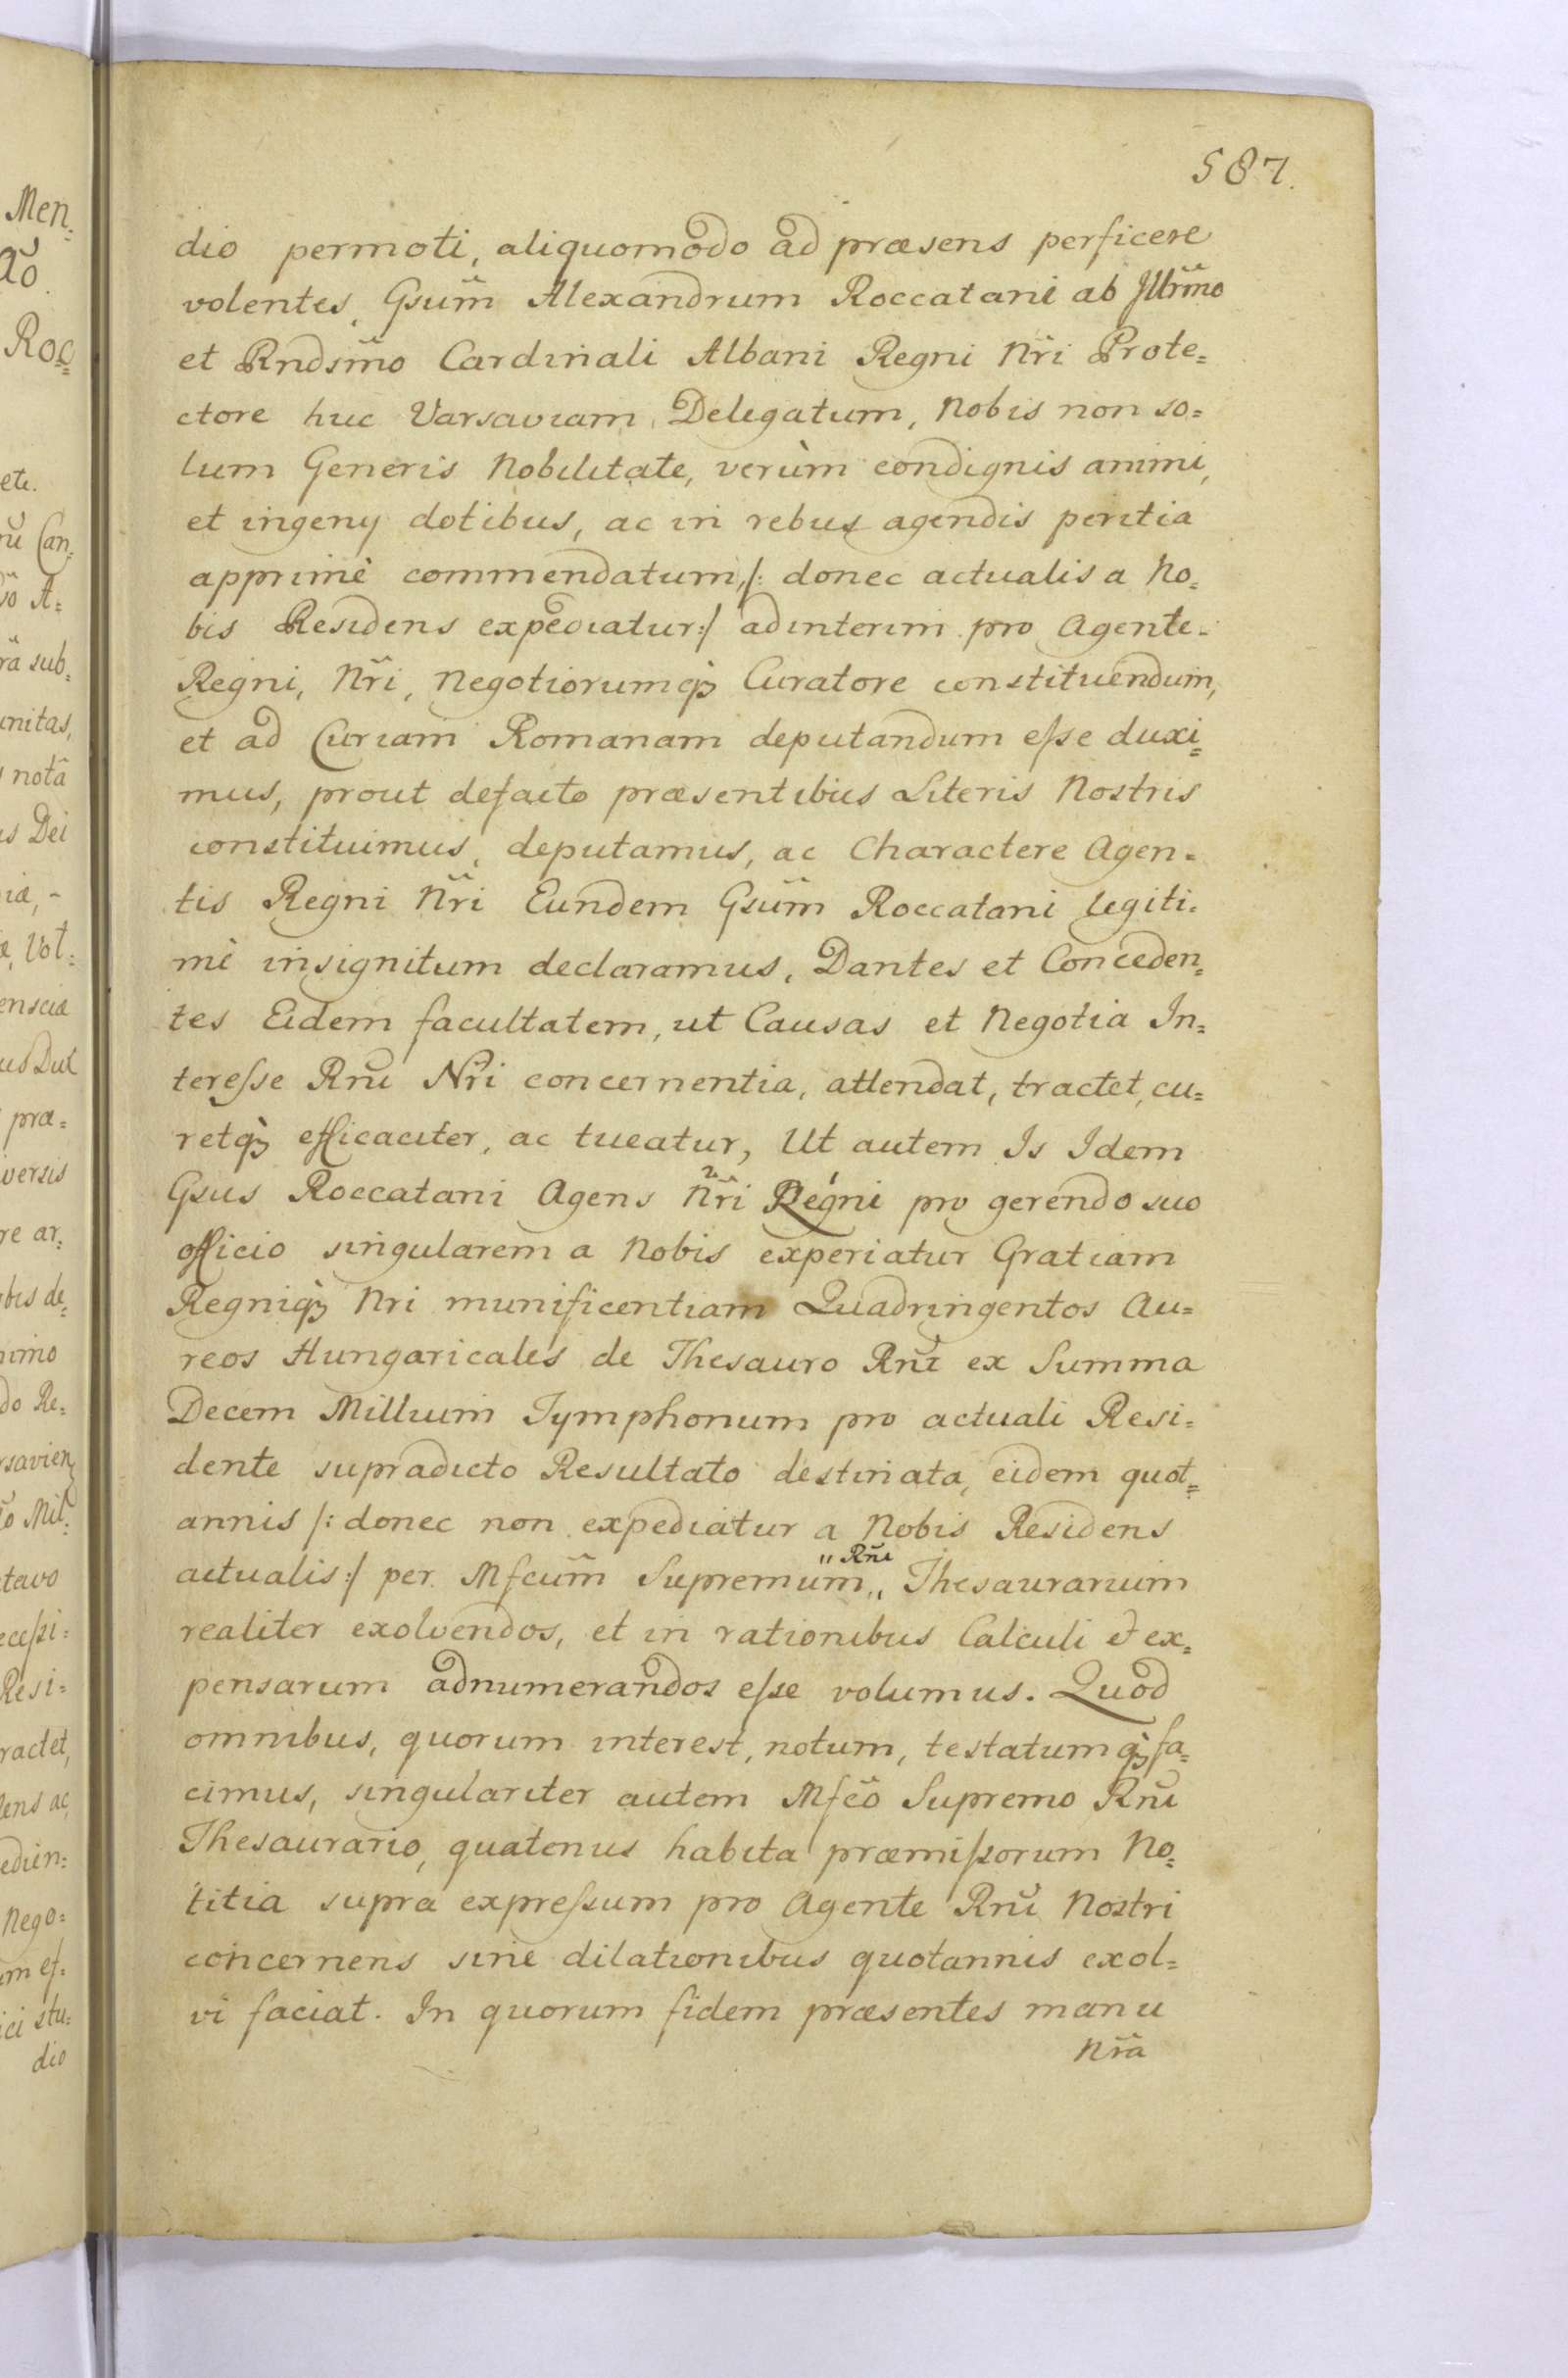 587.
dio permoti, aliquomodo ad præsens perficere
volentes, Gsum̃ Alexandrum Roccatani ab Jllrm̃o
et Rndsm̃o Cardinali Albani Regni Nr̃i Prote=
ctore huc Varsaviam Delegatum, Nobis non so=
lum Generis Nobilitate, verùm condignis animi,
et ingenij dotibus, ac in rebus agendis peritia
apprimè commendatum, /: donec actualis a No=
bis Residens expediatur :/ adinterim pro Agente
Regni, Nr̃i, Negotiorumq́ Curatore constituendum,
et ad Curiam Romanam deputandum eſse duxi=
mus, prout defacto præsentibus Literis Nostris
constituimus, deputamus, ac Charactere Agen=
tis Regni Nr̃i Eundem Gsum̃ Roccatani legiti=
mè insignitum declaramus, Dantes et Conceden=
tes Eidem facultatem, ut Causas et Negotia In=
tereſse Rnĩ Nr̃i concernentia, attendat, tractet, cu=
retq́ efficaciter, ac tueatur, Ut autem Is Idem
Gsus Roccatani Agens Nr̃i Regni pro gerendo suo
officio singularem a Nobis experiatur Gratiam
Regniq́ Nri munificentiam Quadringentos Au=
reos Hungaricales de Thesauro Rnĩ ex Summa
Decem Millium Tymphonum pro actuali Resi=
dente supradicto Resultato destinata, eidem quot=
annis /: donec non expediatur a Nobis Residens
actualis :/ per Mfcum̃ Supremum,, ,,Rnĩ Thesaurarium
realiter exolvendos, et in rationibus Calculi et ex=
pensarum adnumerandos eſse volumus. Quod
omnibus, quorum interest, notum, testatumq́ fa=
cimus, singulariter autem Mfc̃o Supremo Rnĩ
Thesaurario, quatenus habita præmiſsorum No=
titia supra expreſsum pro Agente Rnĩ Nostri
concernens sine dilationibus quotannis exol=
vi faciat. In quorum fidem præsentes manu
Nr̃a